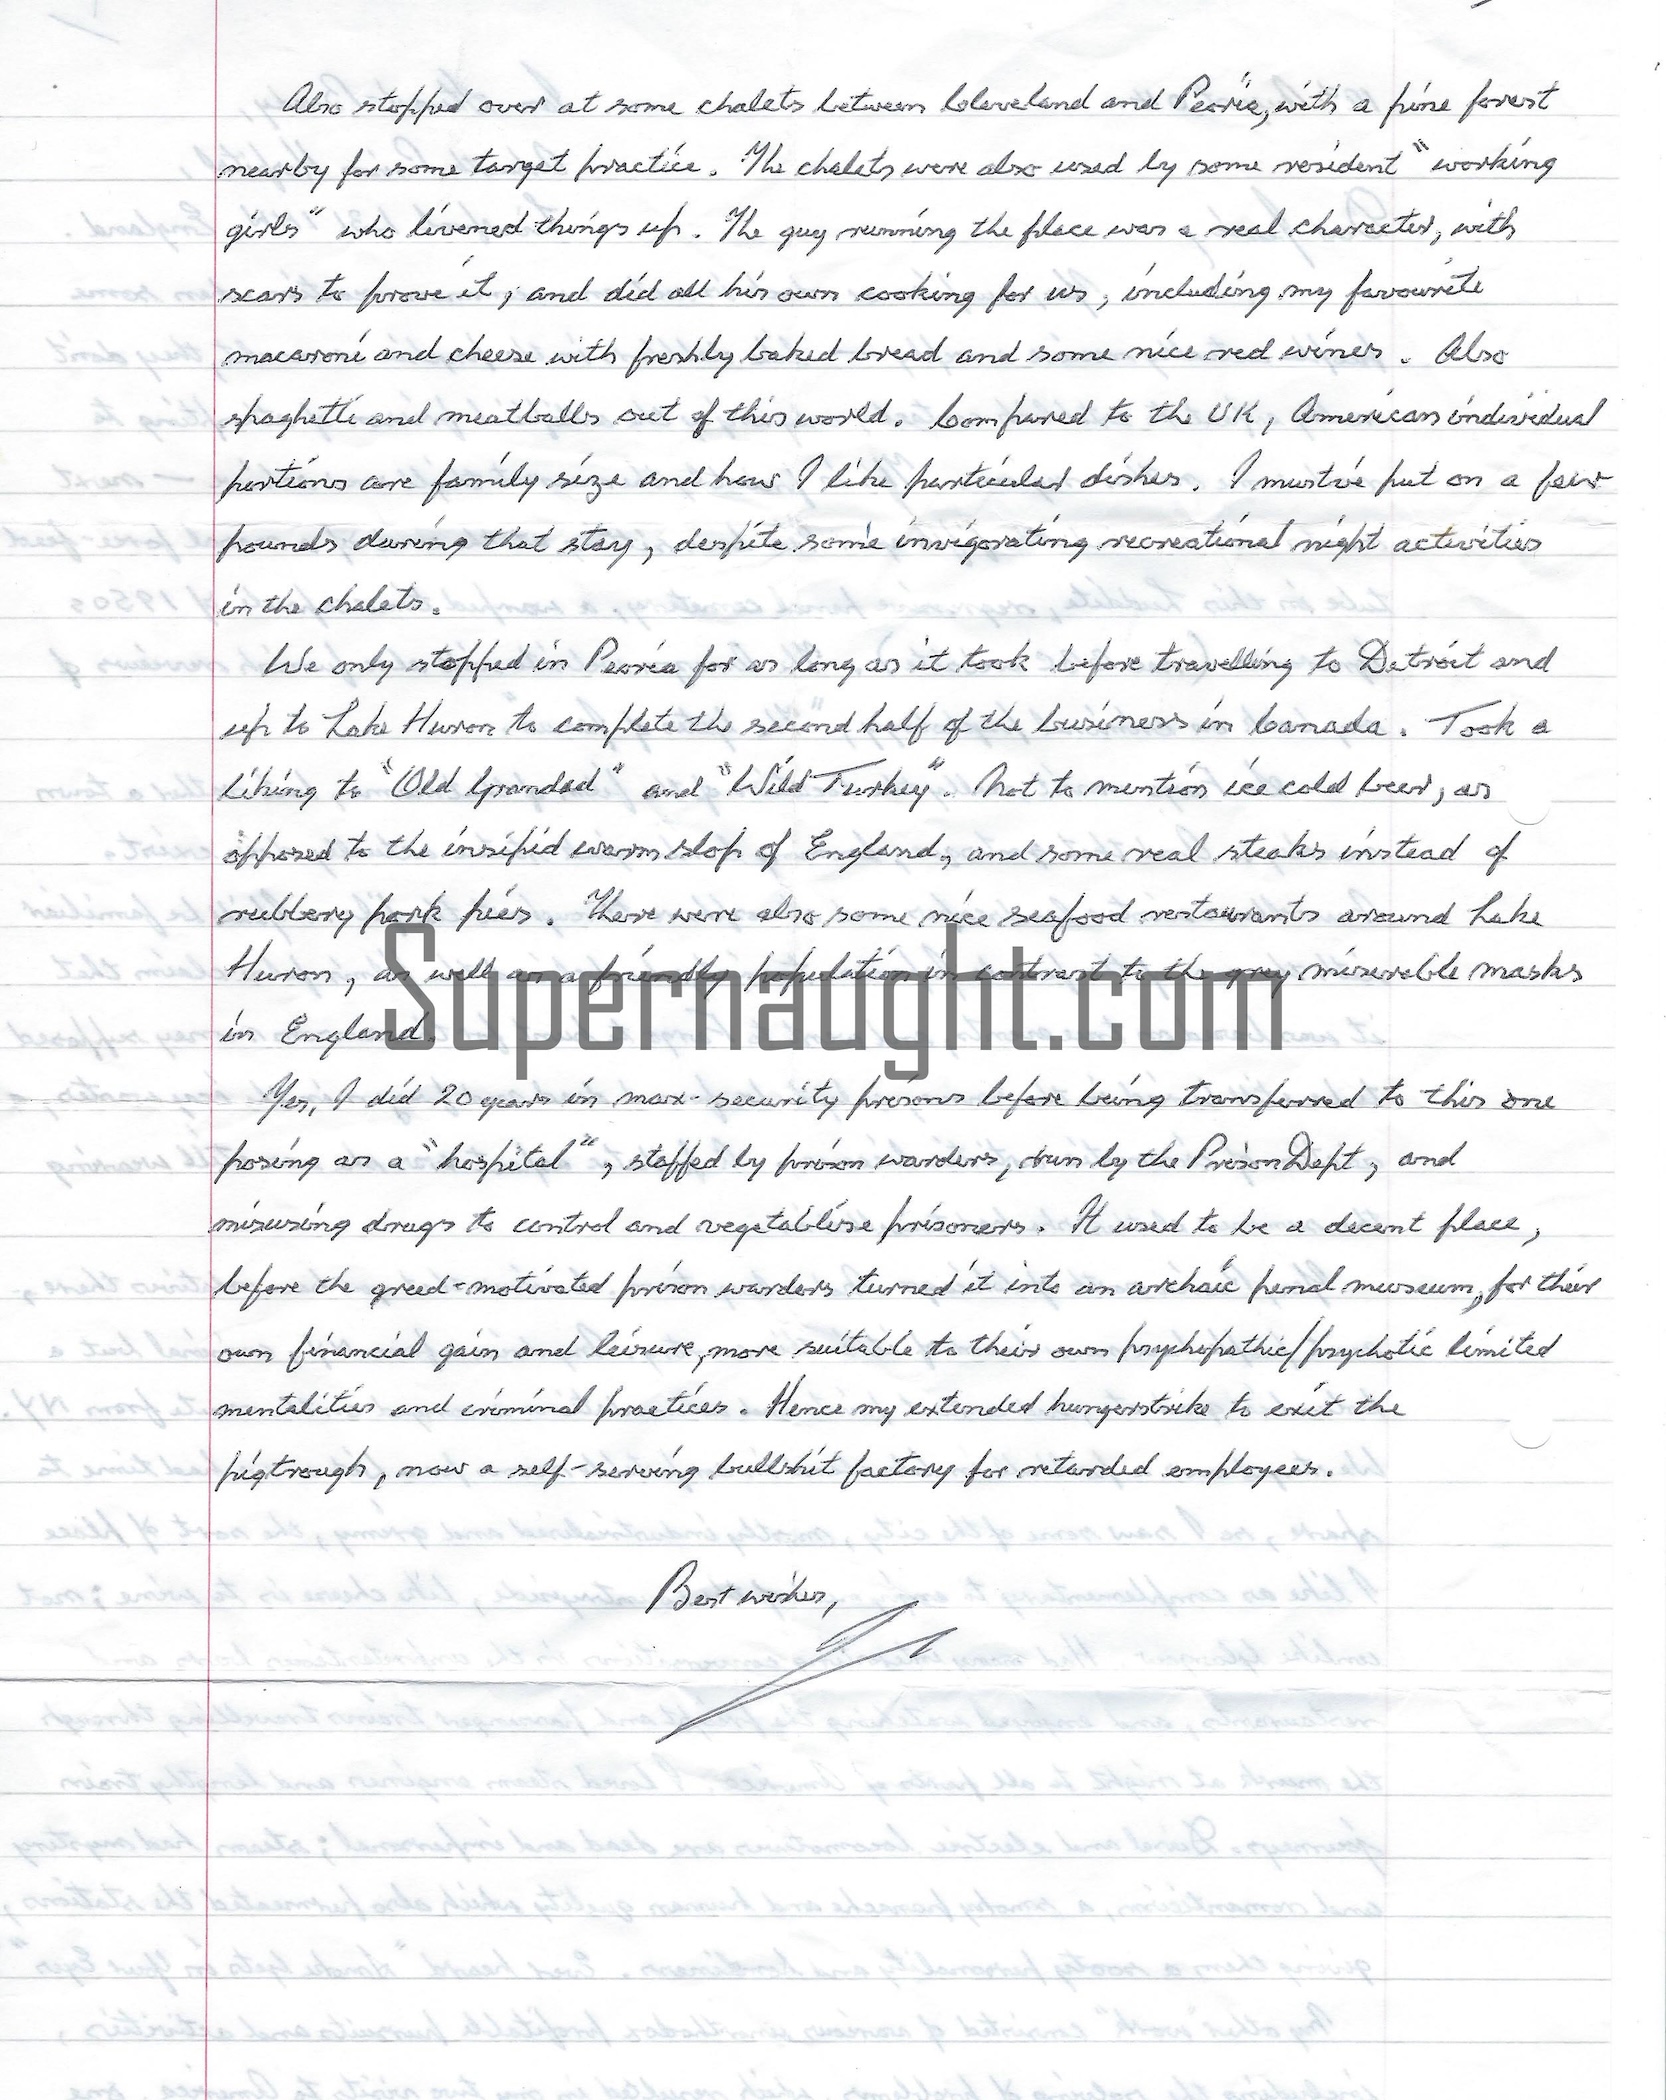 Also stopped over at some chalets between Cleveland and Peoria, with a pine forest
nearby for some target practice. The chalets were also used by some resident "working
girls" who livened things up. The guy running the place was a real character, with
scars to prove it, and did all his own cooking for us, including my favourite
macaroni and cheese with freshly baked bread and some nice red wines. Also
spaghetti and meatballs out of this world. Compared to the UK, American individual
portions are family size and how I like particular dishes. I must've put on a few
pounds during that stay, despite some invigorating recreational night activities
in the chalets.
We only stopped in Peoria for as long as it took before travelling to Detroit and
up to Lake Huron to complete the second half of the business in Canada. Took a
liking to "Old Grandad" and "Wild Turkey". Not to mention ice cold beer, as
opposed to the insipid warm slop of England, and some real steaks instead of
rubbery pork pies. There were also some nice seafood restaurants around Lake
Huron, as well as a friendly population in contrast to the grey miserable masks
in England.
Supernaught.com
Yes, I did 20 years in max-security prisons before being transferred to this one
posing as a "hospital", staffed by prison warders, run by the Prison Dept, and
misusing drugs to control and vegetablise prisoners. It used to be a decent place,
before the greed-motivated prison warders turned it into an archaic penal museum, for their
own financial gain and leisure, more suitable to their own psychopathic/psychotic limited
mentalities and criminal practices. Hence my extended hungerstrike to exit the
pigtrough, now a self-serving bullshit factory for retarded employees.
Best wishes,